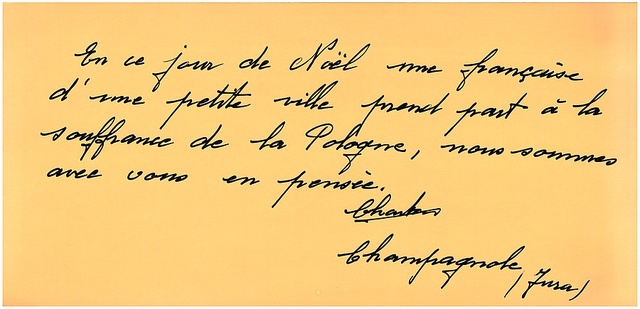 En ce jour de Noël une française
d'une petite ville prend part à la
souffrance de la Pologne, nous sommes
avec vous en pensée.
Champagnole (Jura)